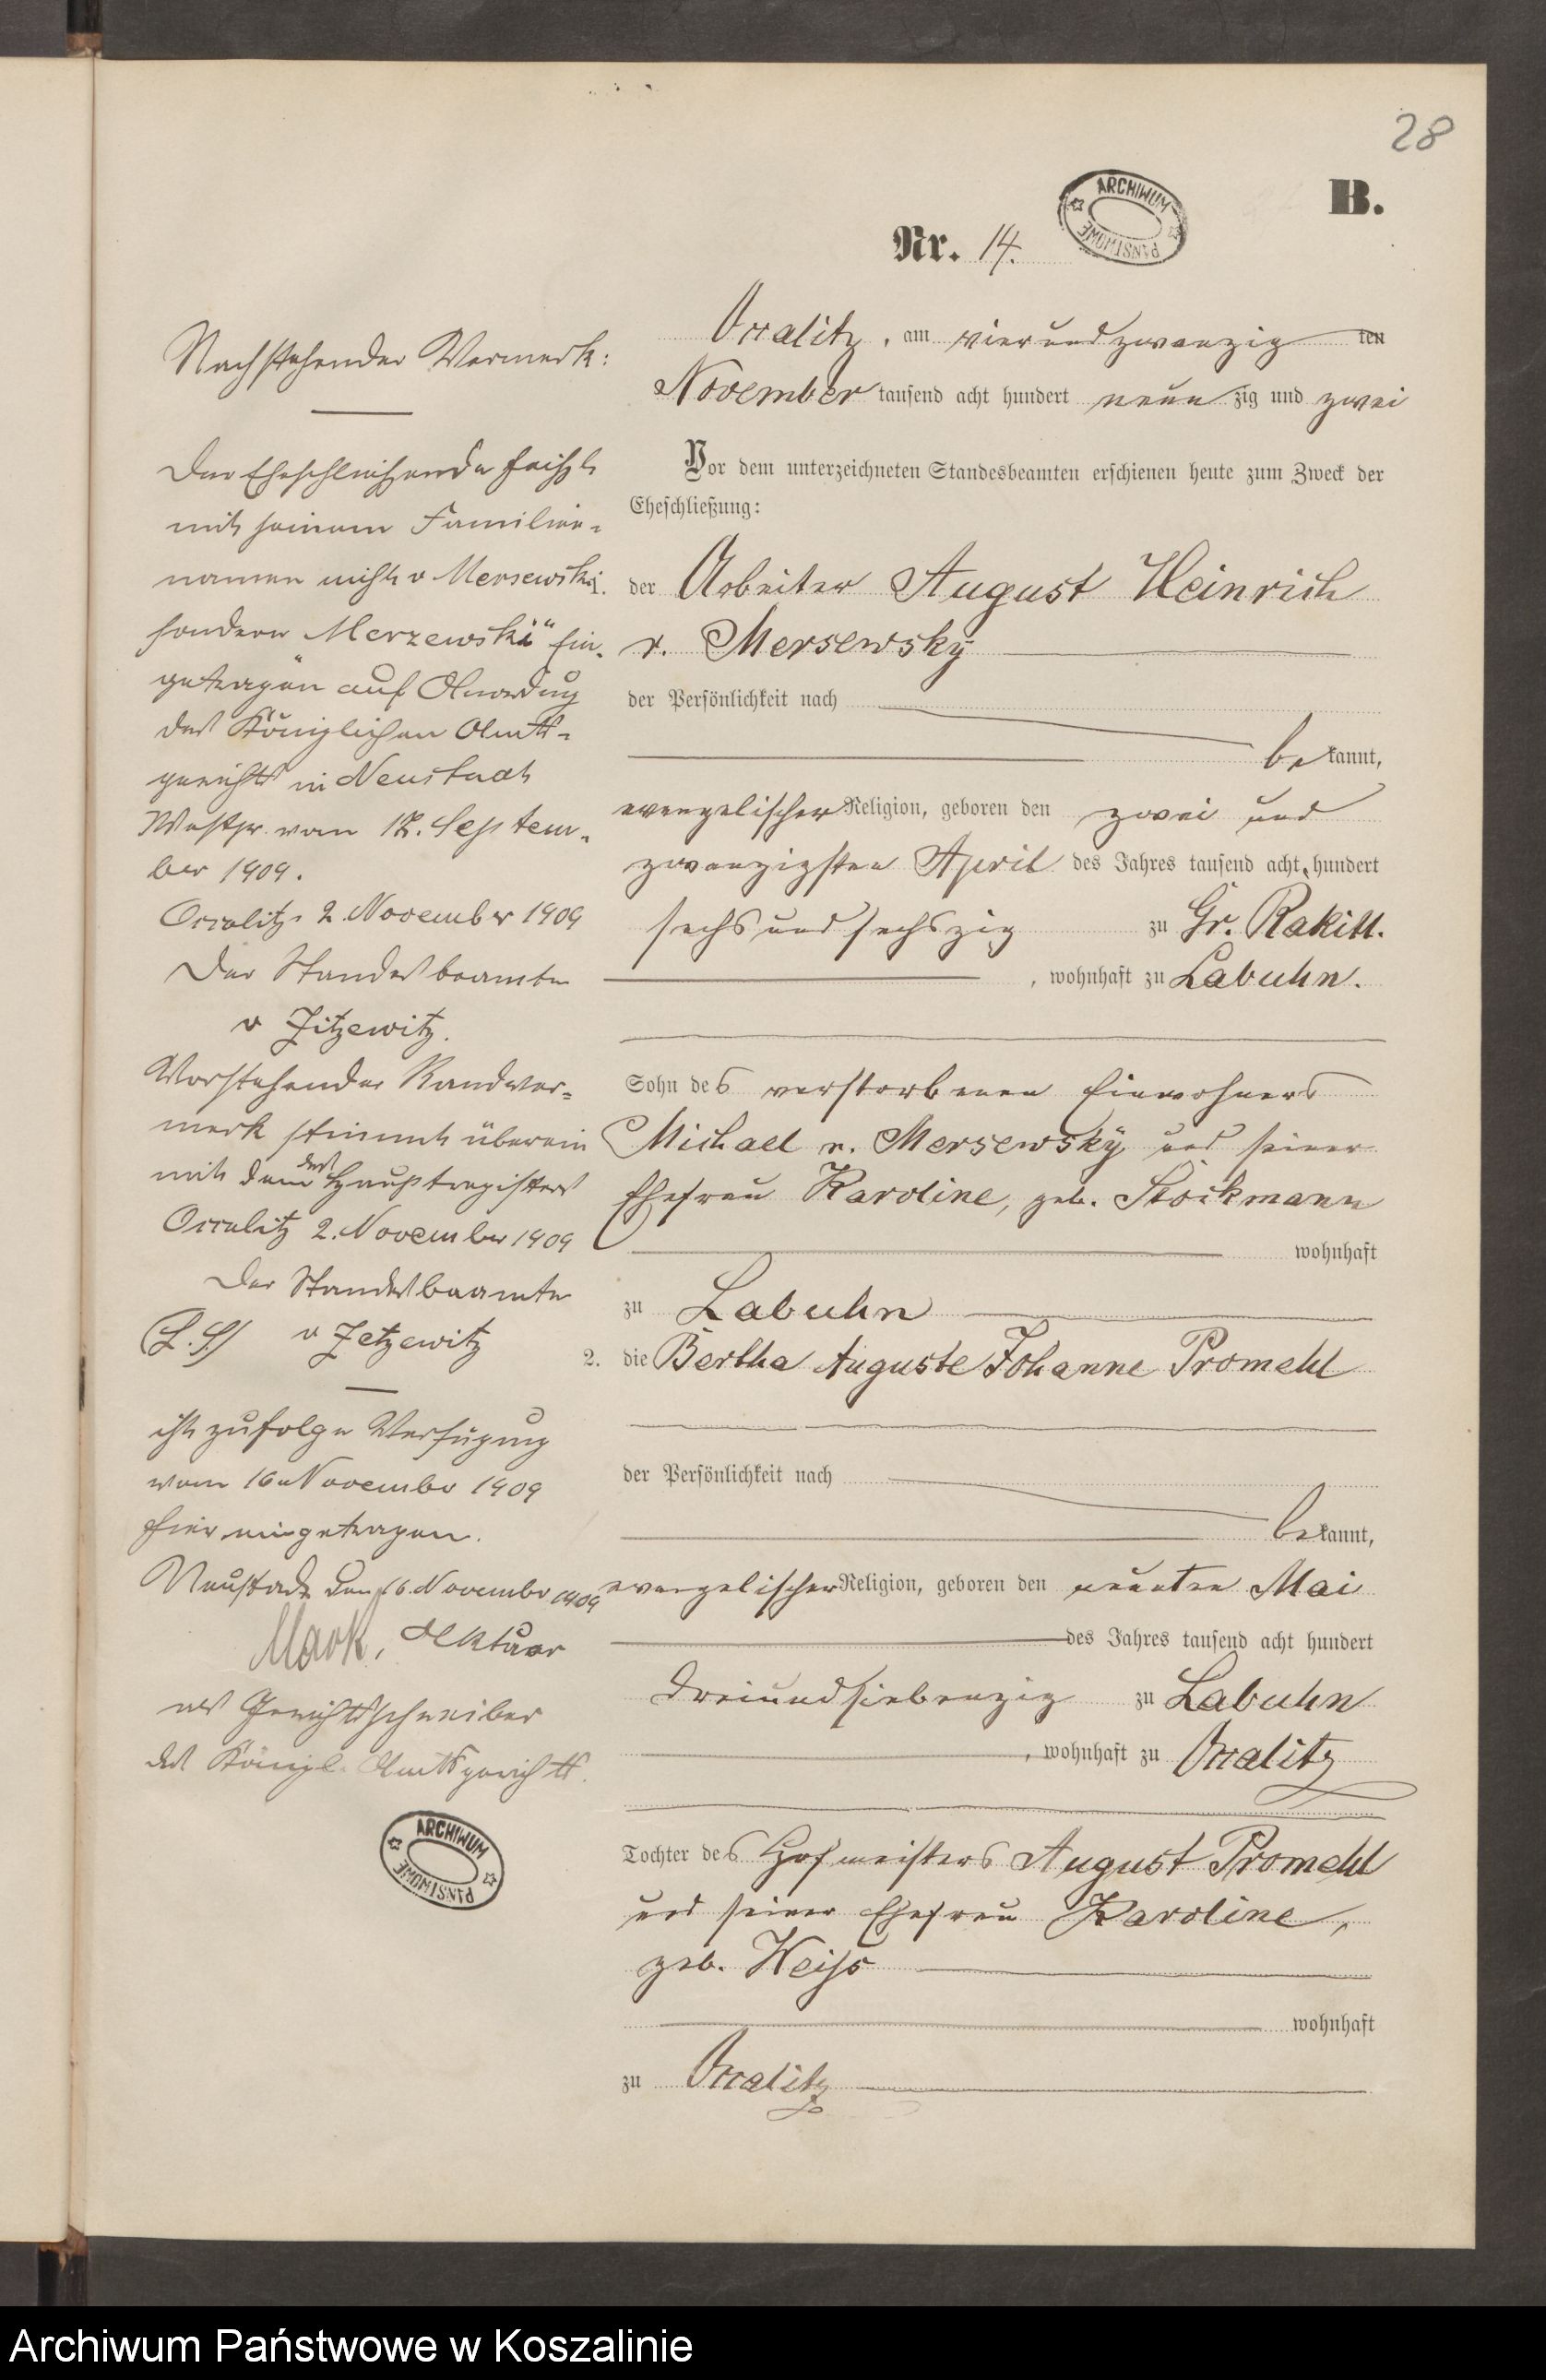 28
B.
ARCHIWUM
PAŃSTWOWE
Nr. 14.
Occalitz, am vierundzwanzigten
November tausend acht hundert neunzig und zwei
Vor dem unterzeichneten Standesbeamten erschienen heute zum Zweck der
Eheschließung:
1. der Arbeiter August Heinrich
v. Mersewsky
der Persönlichkeit nach
bekannt,
evangelischer Religion, geboren den zwei und
zwanzigsten April des Jahres tausend acht hundert
sechsundsechszig zu Gr. Rakitt.
, wohnhaft zu Labuhn.
Sohn des verstorbenen Einwohners
Michael v. Mersewsky und seiner
Ehefrau Karoline, geb. Stöckmann
wohnhaft
zu Labuhn
2. die Bertha Auguste Johanne Promehl
der Persönlichkeit nach
bekannt,
evangelischer Religion, geboren den neunten Mai
des Jahres tausend acht hundert
dreiundsiebenzig zu Labuhn
, wohnhaft zu Occalitz
Tochter des Hofmeisters August Promehl
und seiner Ehefrau Karoline,
geb. Weiss
wohnhaft
zu Occalitz
Nachstehender Vermerk:
Der Eheschließende heißt
mit seinem Familien-
namen nicht v Mersewski
sondern Merzewski" Ein-
getragen auf Anordnung
des Königlichen Amts-
gerichts in Neustadt
Westpr. vom 18. Septem-
ber 1909.
Occalitz 2. November 1909
Der Standesbeamte
v Zitzewitz.
Vorstehender Randver-
merk stimmt überein
mit dem des Hauptregisters
Occalitz 2. November 1909
Der Standesbeamte
(L.S.) v Zetzewitz
ist zufolge Verfügung
vom 16 November 1909
hier eingetragen.
Neustadt den 16. November 1909
Aktuar
als Gerichtsschreiber
des Königl. Amtsgerichts.
ARCHIWUM
PAŃSTWOWE
Archiwum Państwowe w Koszalinie